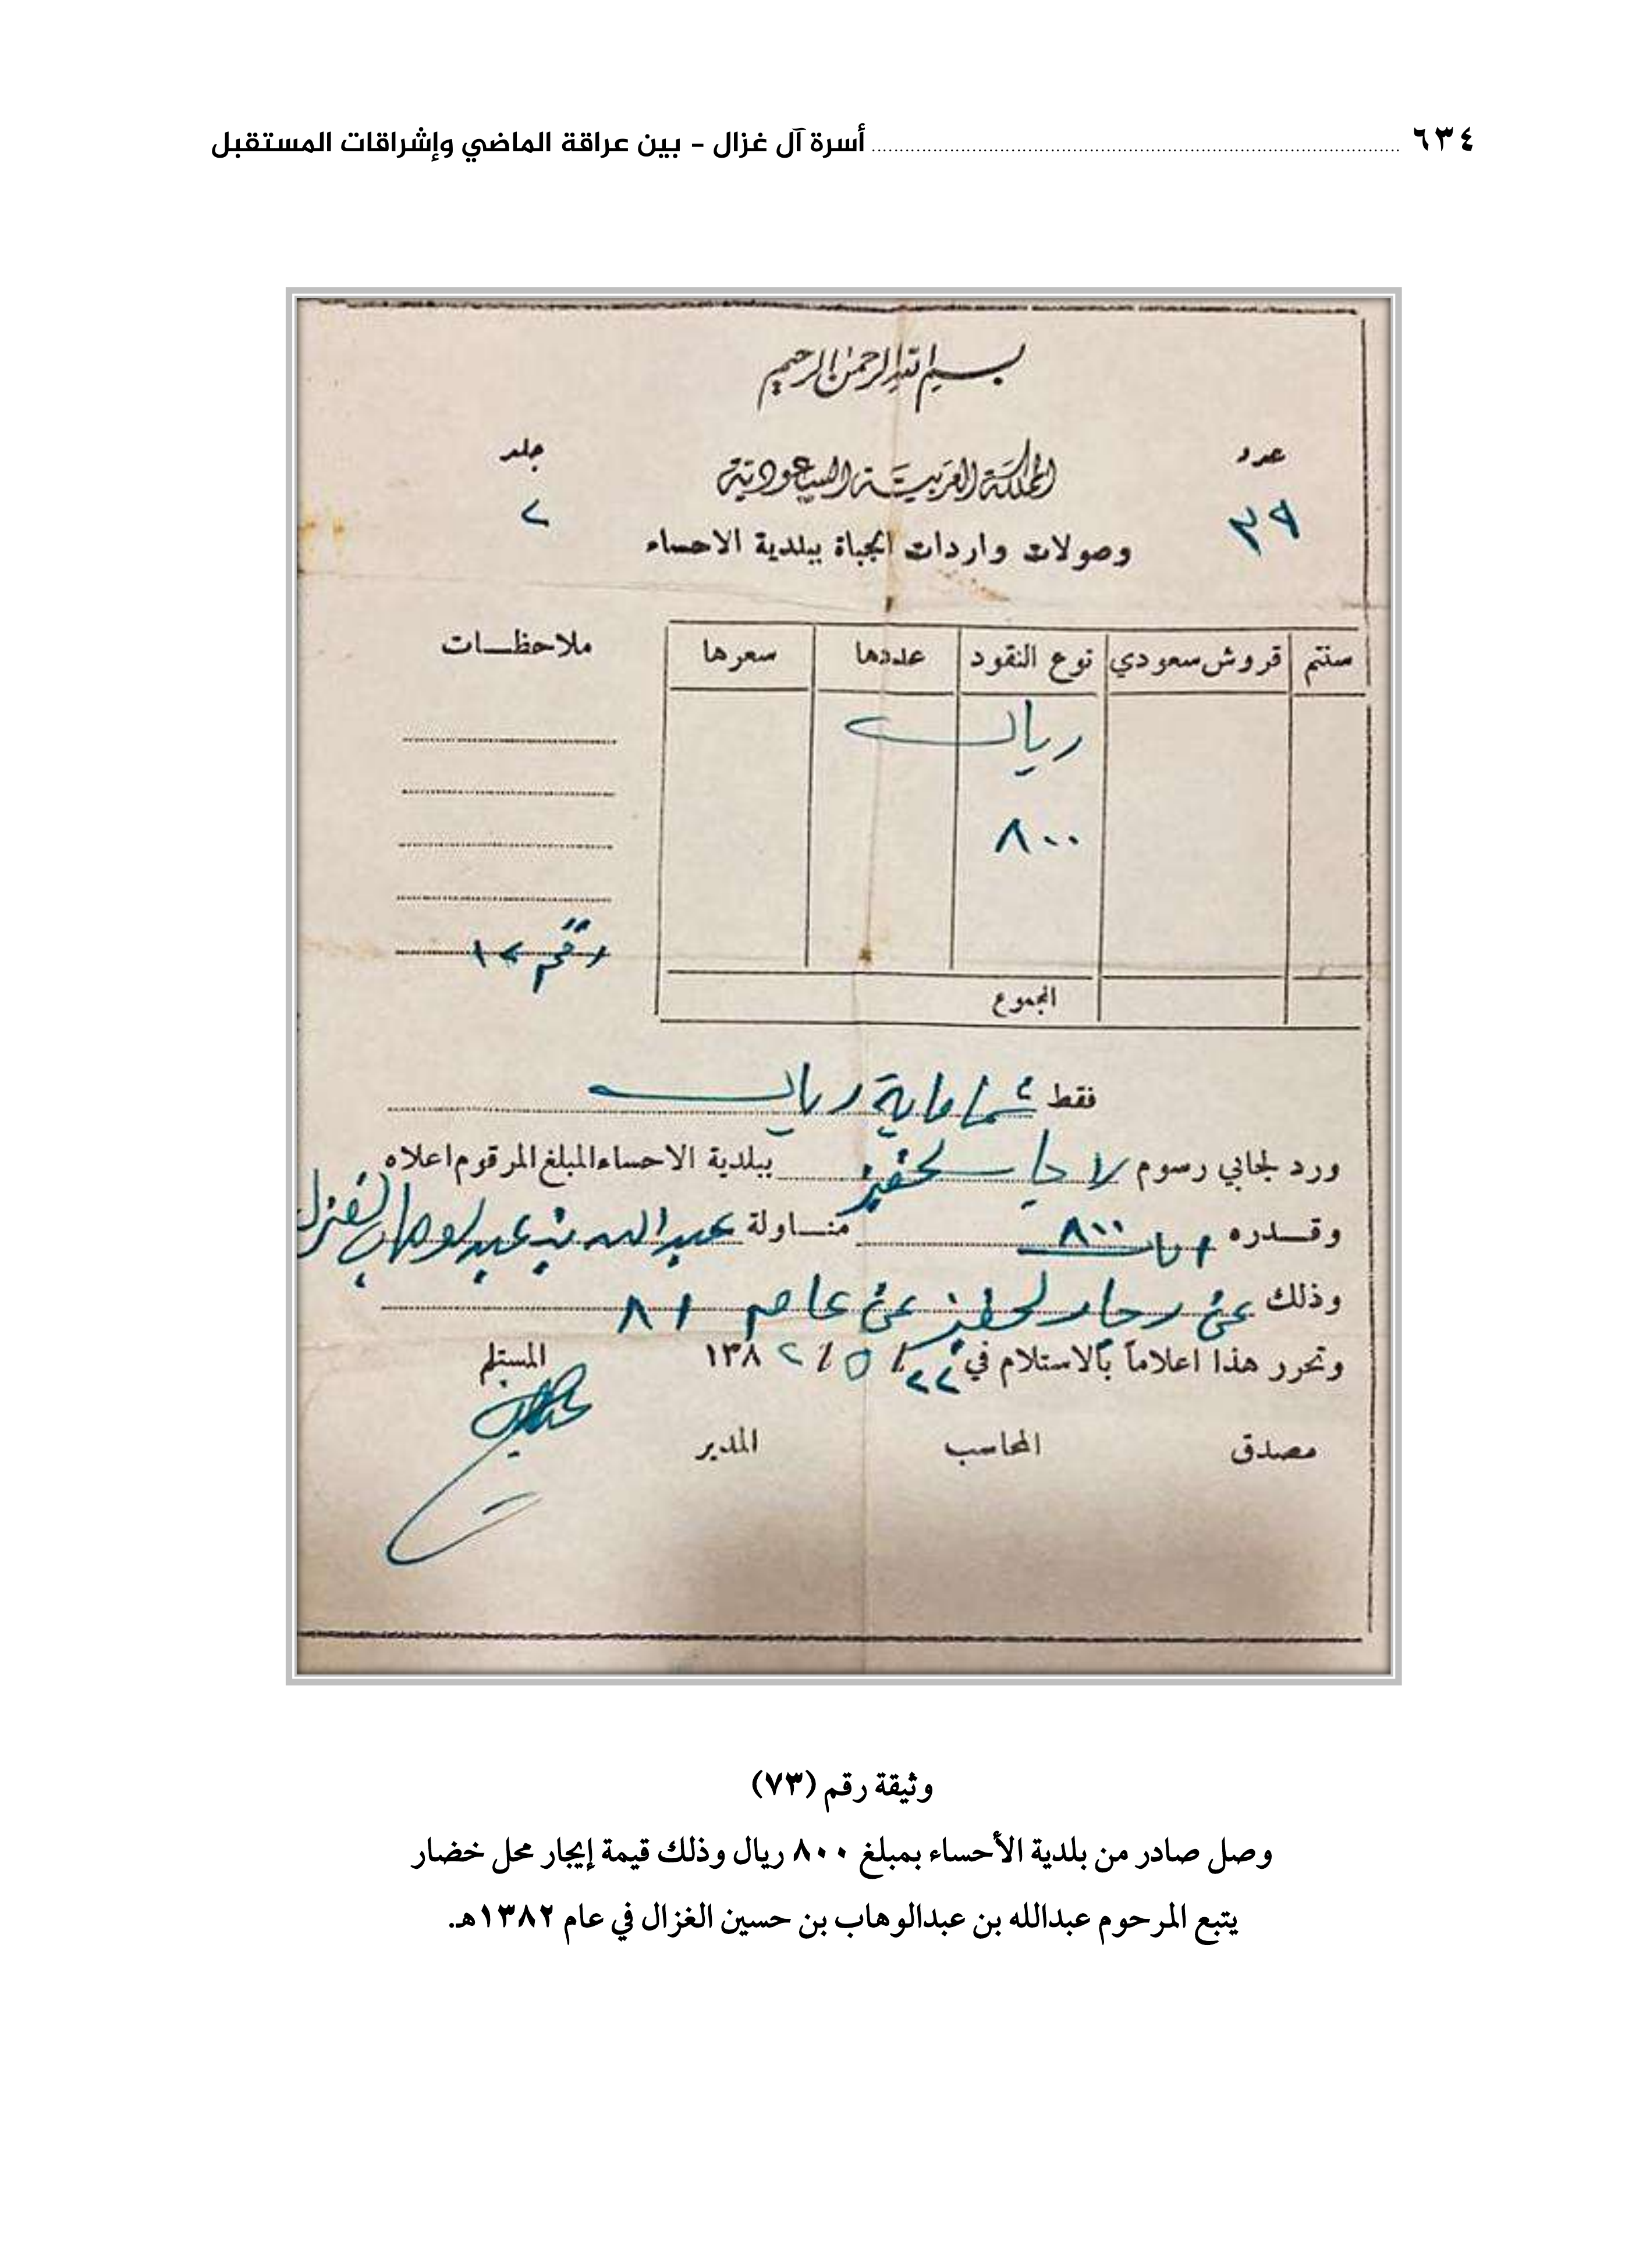 ٦٣٤ ........ أسرة آل غزال - بين عراقة الماضي وإشراقات المستقبل
بسم الله الرحمن الرحيم
عدد
المملكة العربية السعودية
جلد
٣٩
٢
وصولات واردات الجباة ببلدية الاحساء
سنتم قروش سعودي نوع النقود عددها سعرها ملاحظات
ريال
٨٠٠
رقم ١٢
المجموع
فقط ثمانماية ريال
ورد لجابي رسوم ببلدية الاحساء المبلغ المرقوم اعلاه
وقدره ٨٠٠ مناولة عبدالله بن عبدالوهاب الغزال
وذلك عن عن عام ٨١
وتحرر هذا اعلاماً بالاستلام في ٢٢ / ٥ / ١٣٨٢ المستلم
مصدق المحاسب المدير
وثيقة رقم (٧٣)
وصل صادر من بلدية الأحساء بمبلغ ٨٠٠ ريال وذلك قيمة إيجار محل خضار
يتبع المرحوم عبدالله بن عبدالوهاب بن حسين الغزال في عام ١٣٨٢هـ.